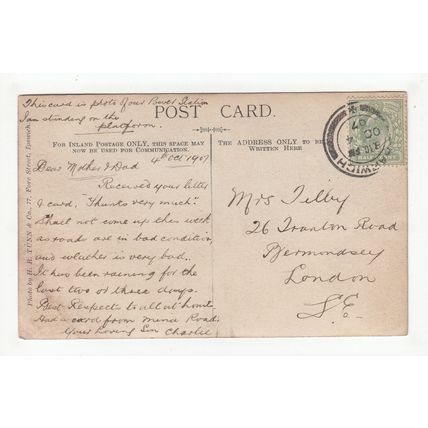 This card is photo of our Power Station
I am standing on the
platform.
POST CARD.
FOR INLAND POSTAGE ONLY, THIS SPACE MAY
NOW BE USED FOR COMMUNICATION.
THE ADDRESS ONLY TO BE
WRITTEN HERE
4th Oct 1907
Dear Mother & Dad
Received your letter
& card, "Thanks very much"
Shall not come up this week
as roads are in bad condition,
and weather is very bad.
It has been raining for the
last two or three days.
Best Respects to all at home.
And a card from
Road,
Your Loving Son Charlie
Mrs Tilby
26 Tranton Road
Bermondsey
London
S.E.
Photo by H. R. TUNN & Co., 17, Fore Street, Ipswich.
HARWICH
OC 4
07